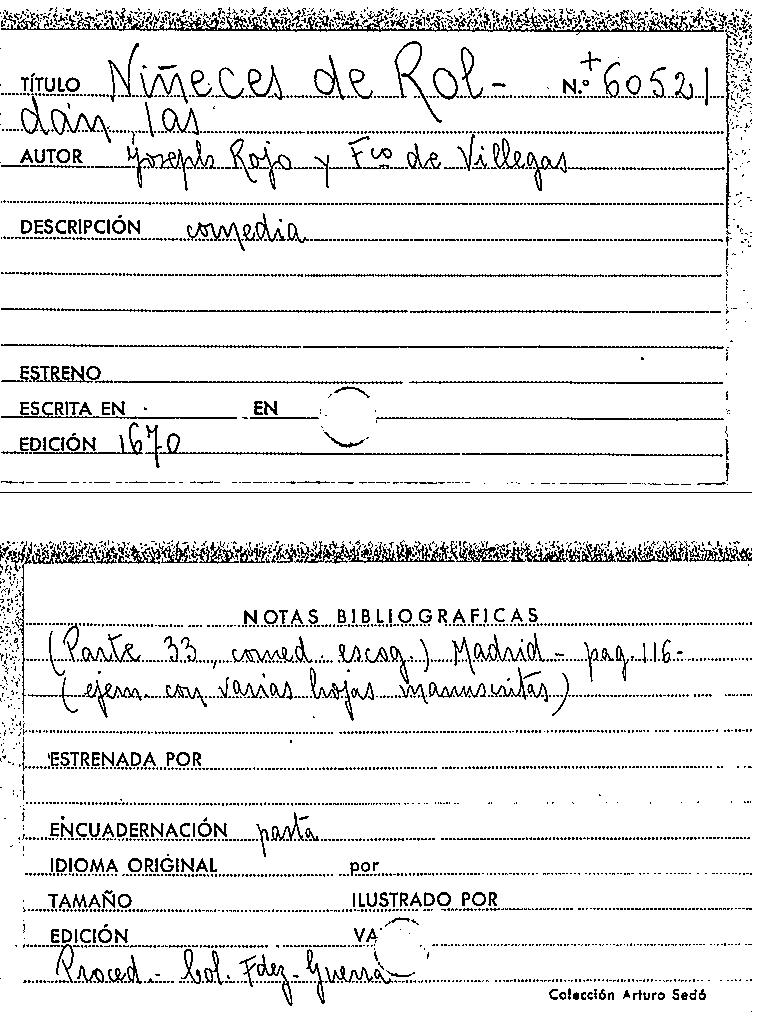 TÍTULO Niñeces de Rol- N.º +60521
dán, las
AUTOR Joseph Rojo y Fco de Villegas
DESCRIPCIÓN comedia
ESTRENO
ESCRITA EN EN
EDICIÓN 1670
NOTAS BIBLIOGRAFICAS
(Parte 33, comed. escog.) Madrid - pag. 116-
(ejem. con varias hojas manuscritas)
ESTRENADA POR
ENCUADERNACIÓN pasta
IDIOMA ORIGINAL por
TAMAÑO ILUSTRADO POR
EDICIÓN VA
Proced.- Col. Fdez-Guerra
Colección Arturo Sedó